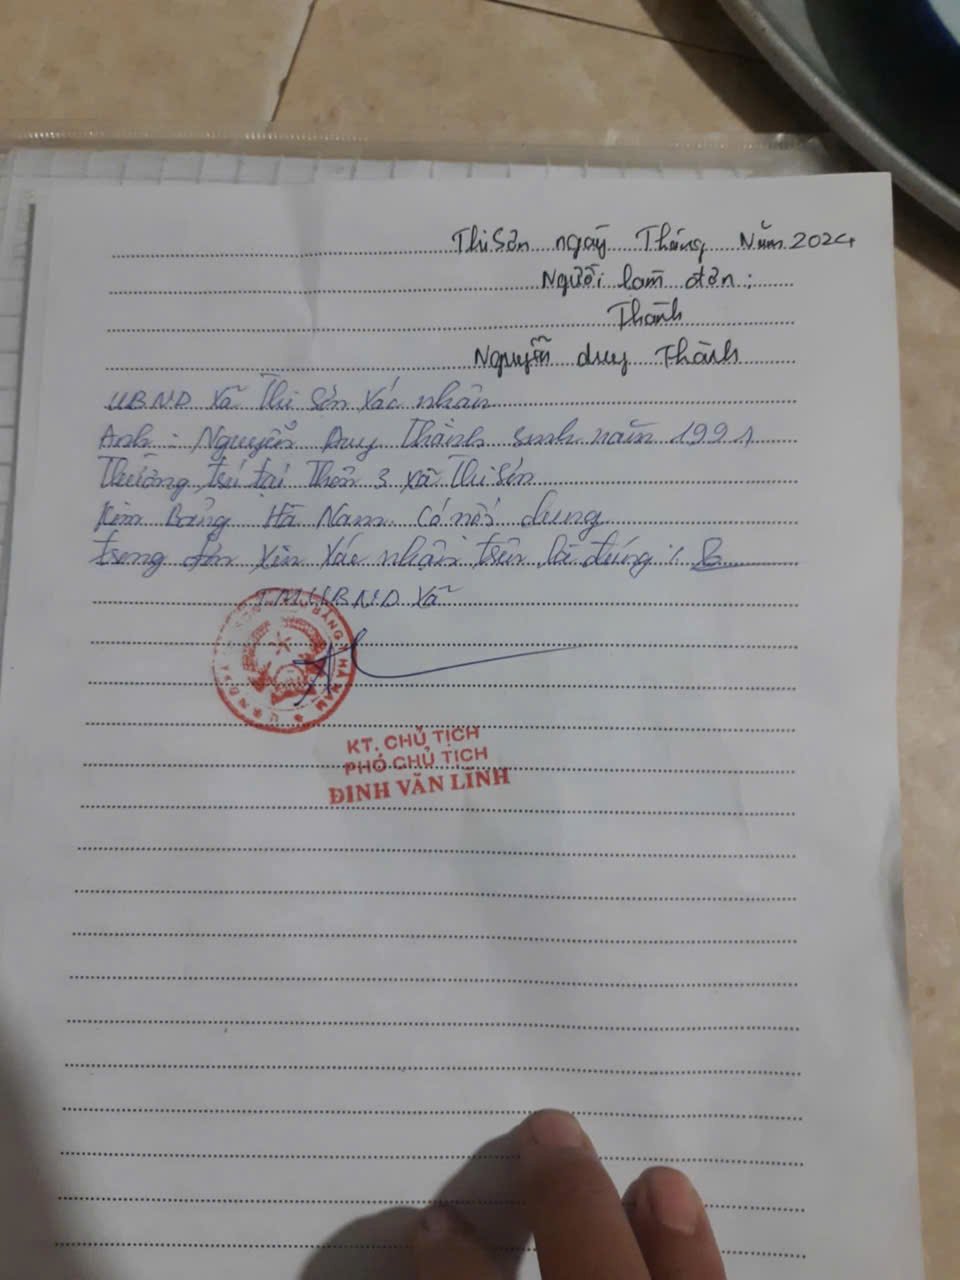 Thi Sơn ngày Tháng Năm 2024
Người làm đơn:
Thành
Nguyễn duy Thành
UBND xã Thi Sơn xác nhân
Anh: Nguyễn Duy Thành sinh năm 1991
Thường trú tại Thôn 3 xã Thi Sơn
Kim Bảng Hà Nam Có nội dung
trong đơn xin xác nhận trên là đúng
TM UBND xã
BẢNG T. HÀ NAM ★ U.B.N.D X
KT. CHỦ TỊCH
PHÓ CHỦ TỊCH
ĐINH VĂN LĨNH